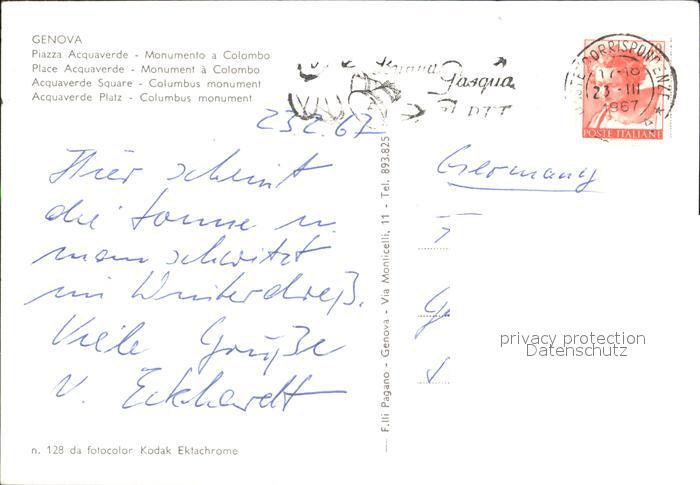 GENOVA
Piazza Acquaverde - Monumento a Colombo
Place Acquaverde - Monument à Colombo
Acquaverde Square - Columbus monument
Acquaverde Platz - Columbus monument
Pasqua
CORRISPONDENZE
17-18
23-III
1967
POSTE ITALIANE
23.2.67
Hier scheint
die Sonne u.
man schwitzt
im Winterdreß.
Viele Grüße
v. Eckhardt
Germany
F.lli Pagano - Genova - Via Monticelli, 11 - Tel. 893.825
privacy protection
Datenschutz
n. 128 da fotocolor Kodak Ektachrome